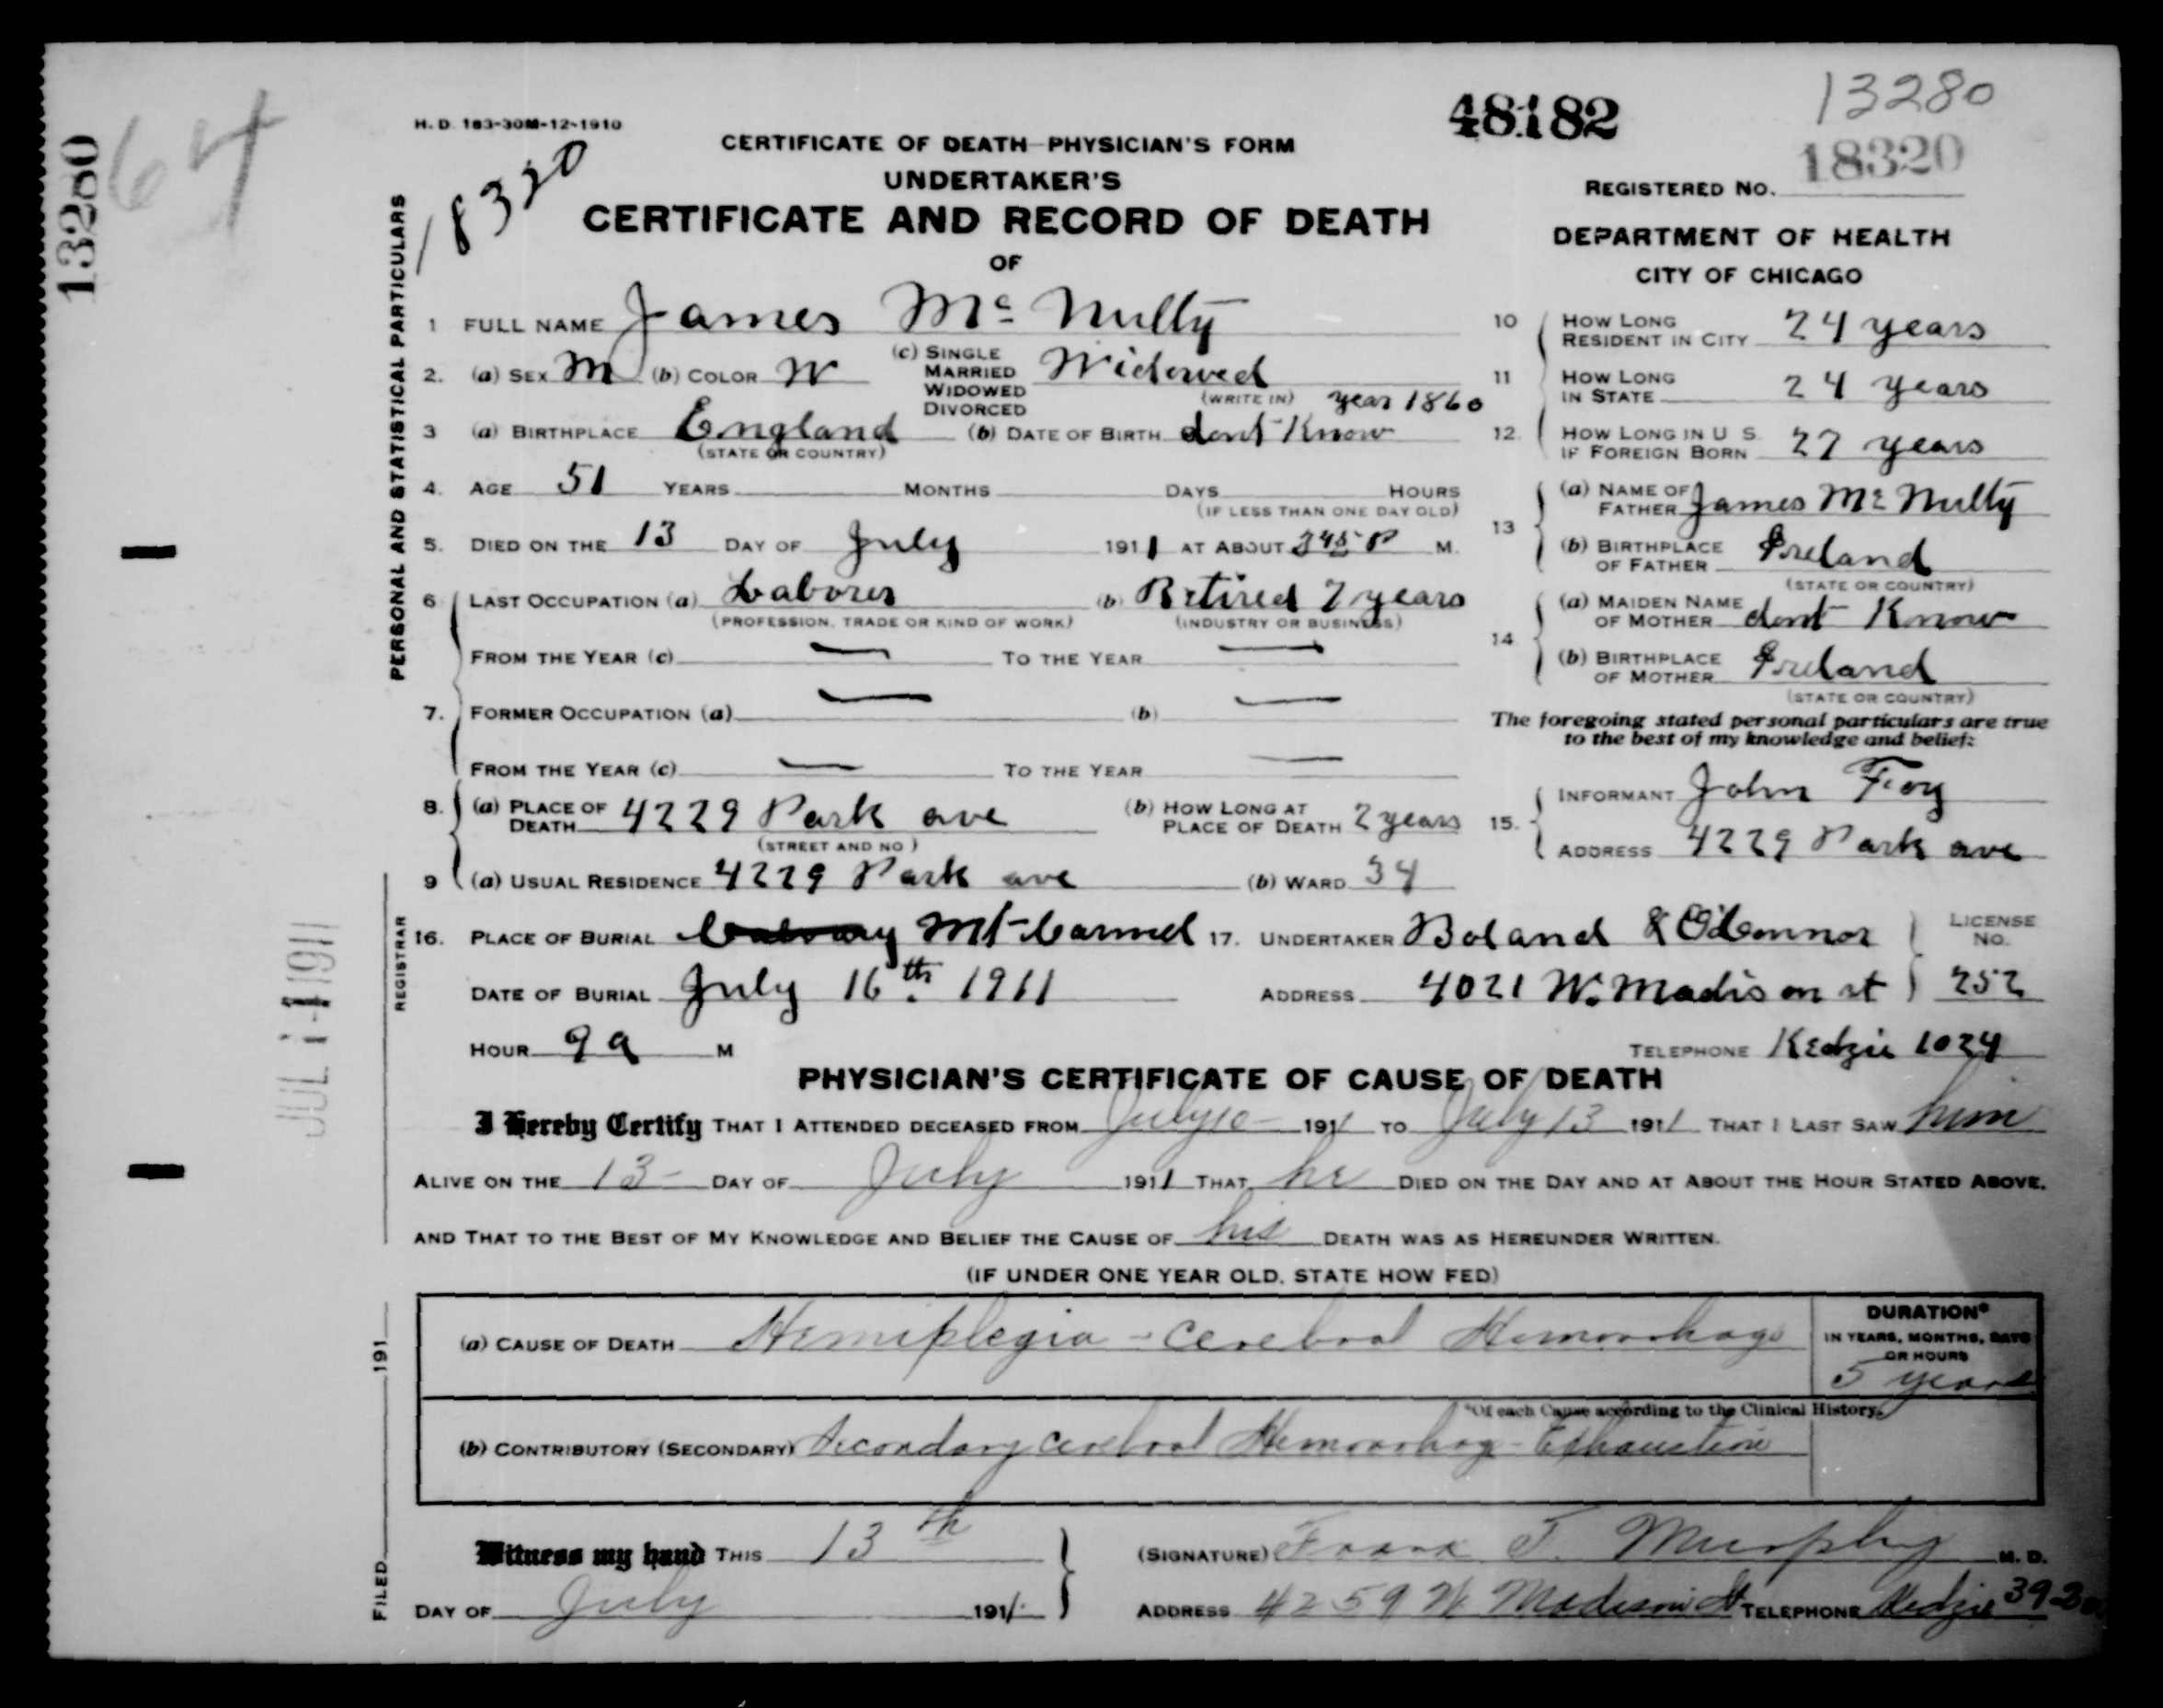 13280
64
H. D. 183-30M-12-1910
18320
48182
13280
18320
REGISTERED NO.
CERTIFICATE OF DEATH PHYSICIAN'S FORM
UNDERTAKER'S
CERTIFICATE AND RECORD OF DEATH
OF
DEPARTMENT OF HEALTH
CITY OF CHICAGO
PERSONAL AND STATISTICAL PARTICULARS
1 FULL NAME James Mc Nulty
2. (a) SEX M (b) COLOR W (c) SINGLE MARRIED WIDOWED DIVORCED Widowed
(WRITE IN) year 1860
3 (a) BIRTHPLACE England (b) DATE OF BIRTH dont Know
(STATE OR COUNTRY)
4. AGE 51 YEARS MONTHS DAYS HOURS
(IF LESS THAN ONE DAY OLD)
5. DIED ON THE 13 DAY OF July 1911 AT ABOUT 245 P M.
6 LAST OCCUPATION (a) Laborer (b) Retired 7 years
(PROFESSION, TRADE OR KIND OF WORK) (INDUSTRY OR BUSINESS)
FROM THE YEAR (c) — TO THE YEAR —
7. FORMER OCCUPATION (a) — (b) —
FROM THE YEAR (c) — TO THE YEAR —
8. (a) PLACE OF DEATH 4229 Park ave (b) HOW LONG AT PLACE OF DEATH 2 years
(STREET AND NO)
9 (a) USUAL RESIDENCE 4229 Park ave (b) WARD 34
10 HOW LONG RESIDENT IN CITY 24 years
11 HOW LONG IN STATE 24 years
12. HOW LONG IN U S. IF FOREIGN BORN 27 years
13 (a) NAME OF FATHER James Mc Nulty
(b) BIRTHPLACE OF FATHER Ireland
(STATE OR COUNTRY)
14 (a) MAIDEN NAME OF MOTHER dont Know
(b) BIRTHPLACE OF MOTHER Ireland
(STATE OR COUNTRY)
The foregoing stated personal particulars are true
to the best of my knowledge and belief:
15. INFORMANT John Foy
ADDRESS 4229 Park ave
REGISTRAR
JUL 14 1911
16. PLACE OF BURIAL Calvary Mt Carmel 17. UNDERTAKER Boland & O'Connor LICENSE NO.
DATE OF BURIAL July 16th. 1911 ADDRESS 4021 W. Madison st 252
HOUR 9 a M TELEPHONE Kedzie 1024
PHYSICIAN'S CERTIFICATE OF CAUSE OF DEATH
I Hereby Certify THAT I ATTENDED DECEASED FROM July 10 1911 TO July 13 1911 THAT I LAST SAW him
ALIVE ON THE 13 DAY OF July 1911 THAT he DIED ON THE DAY AND AT ABOUT THE HOUR STATED ABOVE.
AND THAT TO THE BEST OF MY KNOWLEDGE AND BELIEF THE CAUSE OF his DEATH WAS AS HEREUNDER WRITTEN.
(IF UNDER ONE YEAR OLD, STATE HOW FED)
(a) CAUSE OF DEATH Hemiplegia - Cerebral Hemorrhage
DURATION*
IN YEARS, MONTHS, DAYS
OR HOURS
5 years
*Of each Cause according to the Clinical History.
(b) CONTRIBUTORY (SECONDARY) Secondary Cerebral Hemorrhage - Exhaustion
FILED 191
Witness my hand THIS 13th (SIGNATURE) Frank T. Murphy M. D.
DAY OF July 1911. ADDRESS 4259 W Madison St TELEPHONE Kedzie